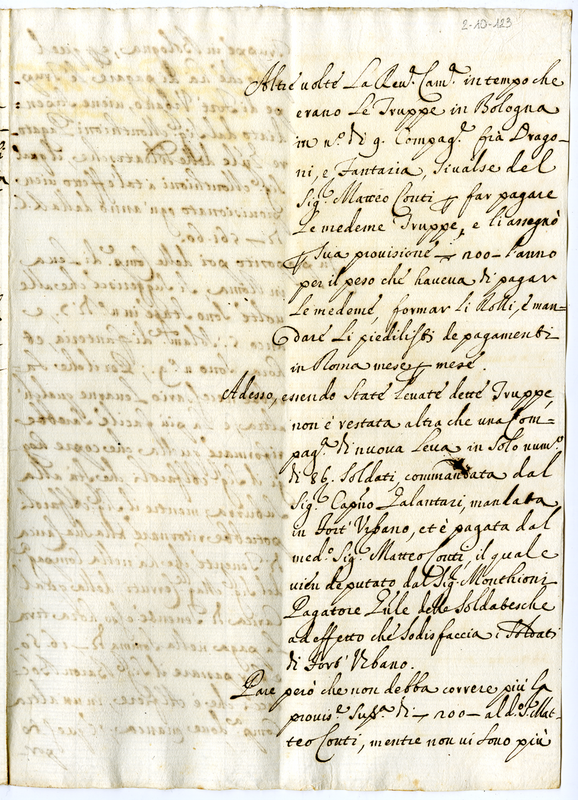 2-10-123
Altre volte La Reu.ª Cam.ª in tempo che
erano Le Truppe in Bologna
in n.º di 9. Compag.e frà Drago-
ni, e, Fantaria, si ualse del
Sig.r Matteo Conti p far pagare
Le medeme Truppe, e li assegnò
p sua provisione 200- l'anno
per il peso che haueua di pagar
Le medeme, formar Li Rolli, e man-
dare Li piedilisti de pagamenti
in Roma mese p mese.
Adesso, essendo state Leuate dette Truppe,
non è restata altra che una Com-
pag.a di nuova Leua in solo num.º
di 86. Soldati, commandata dal
Sig.r Cap.no Palantari, mandata
in Fort' Vrbano, et è pagata dal
med.º Sig.r Matteo Conti, il quale
vien deputato dal Sig.r Monthioni
Pagatore g͞nle delle Soldatesche
ad effetto che sodisfaccia i Soldati
di Fort' Vrbano.
Pare però che non debba correre più La
provis.e sup.a di 200- al d.º S.r Mat-
teo Conti, mentre non ui sono più